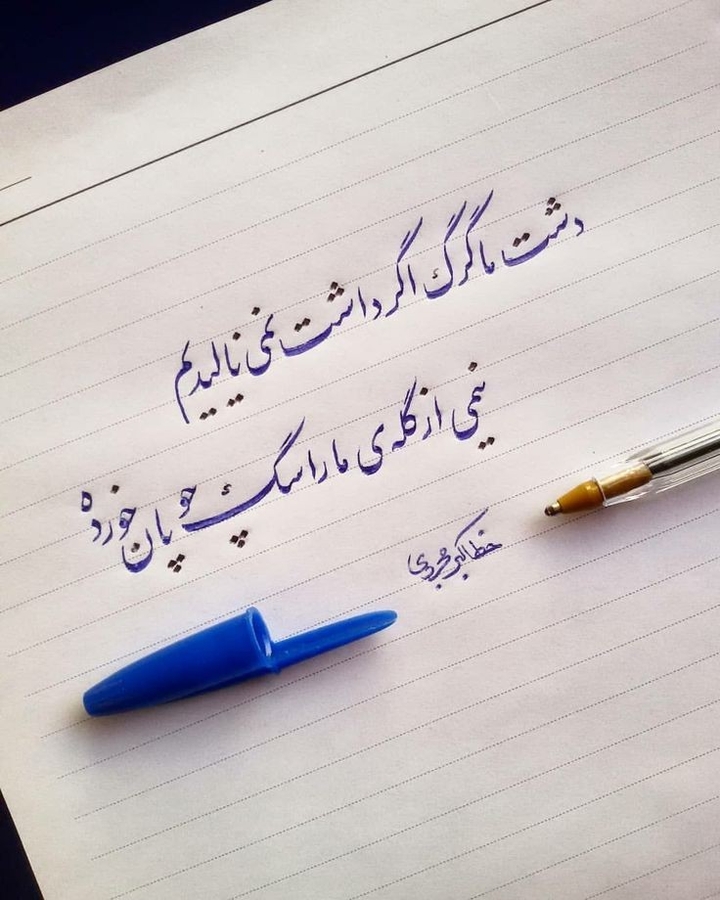 دشت ما گرگ اگر داشت نمی نالیدیم
نیمی از گله‌ی ما را سگ چوپان خورده
خط اکبر